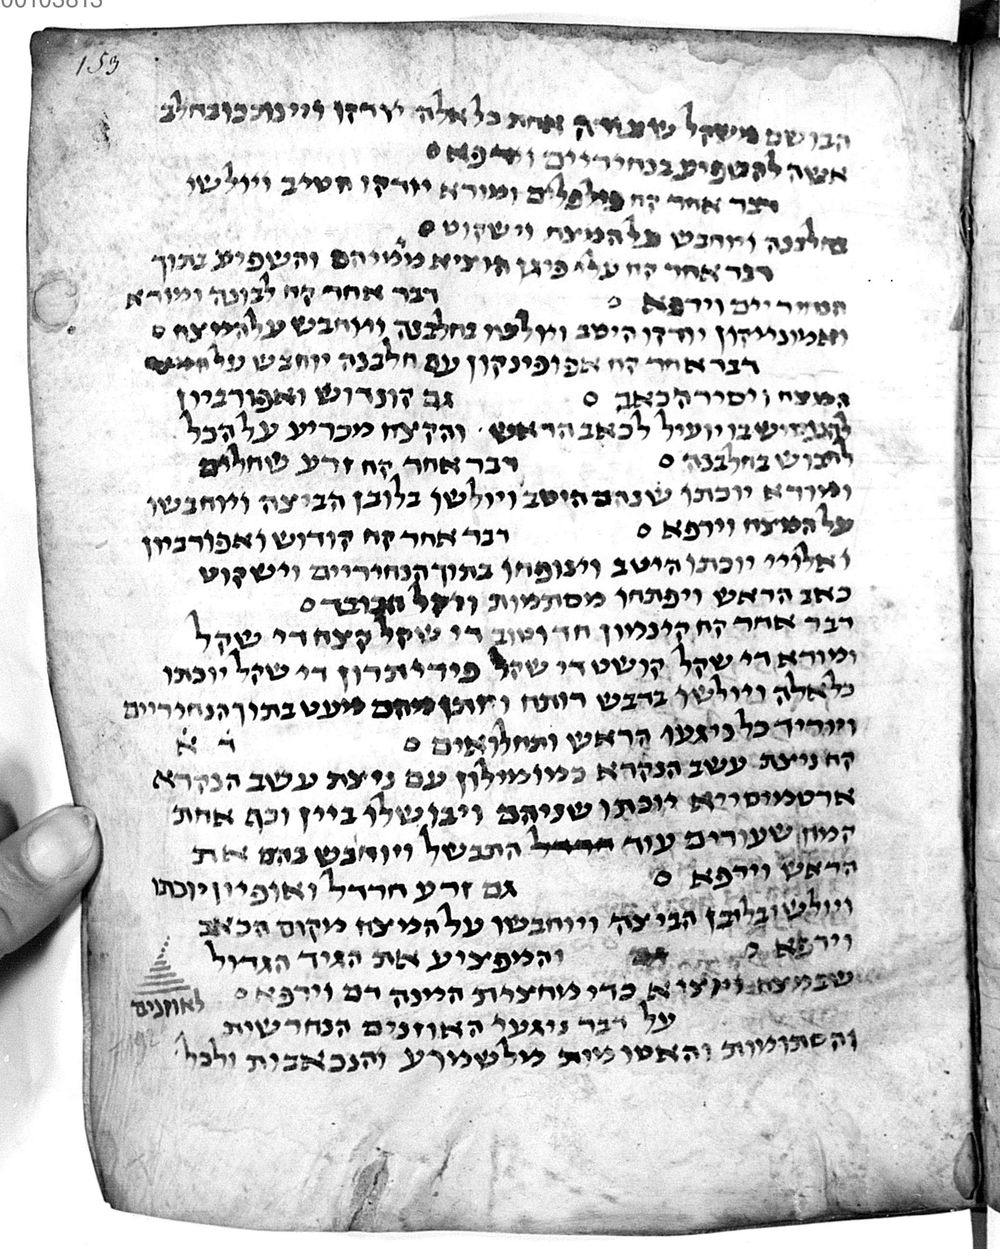 00103813
153
הבושם משקל שעורה אחת כל אלה יודקו ויינתכו בחלב
אשה להטפיע בנחיריים וירפא
דבר אחר קח פילפלים ומורא יודקו הטיב ויולשו
בחלבנה ויוחבש על המצח וישקוט
דבר אחר קח עלי פיגן הוציא ממימיהם והשפיע בתוך
הנחיריים וירפא דבר אחר קח לבונה ומורא
ואמוניקון יודקו היטב ויולשו בחלבנה ויוחבש על המצח
דבר אחר קח אפופינקון עם חלבנה יוחבש על
המצח ויסיר הכאב גם קונדוש ואפורביון
לבוש בו יועיל לכאב הראש והקצח מכריע על הכל
לחבוש בחלבנה דבר אחר קח זרע שחלים
ומורא יוכתו שניהם היטב ויולשו בלובן הביצה ויוחבשו
על המצח וירפא דבר אחר קח קודוש ואפורביון
ואלויי יוכתו היטב וינופחו בתוך הנחיריים וישקוט
כאב הראש ויפתחו מסתמות ויקל הכובד
דבר אחר קח קינמון חד וטוב די שקל קצח די שקל
ומורא די שקל קושט די שקל פידיתרון די שקל יוכתו
כל אלה ויולשו בדבש רותח ויותן מהם מעט בתוך הנחיריים
ויוריד כל ניגעי הראש ותחלואים ד א
קח ניצת עשב הנקרא כמומילון עם ניצת עשב הנקרא
ארטמיסייא יוכתו שניהם ויבושלו ביין וכף אחת
קמח שעורים עוד התבשל ויוחבש בהם את
הראש וירפא גם זרע חרדל ואופיון יוכתו
ויולשו בלובן הביצה ויוחבשו על המצח מקום הכאב
וירפא והמפציע את הגיד הגדול
שבמצח ויוציא כדי מחצית המנה דם וירפא
לאוזנים
על דבר ניגעי האוזנים הנחרשות
והסתומות והאטומות מלשמוע והנכאבות ולכל